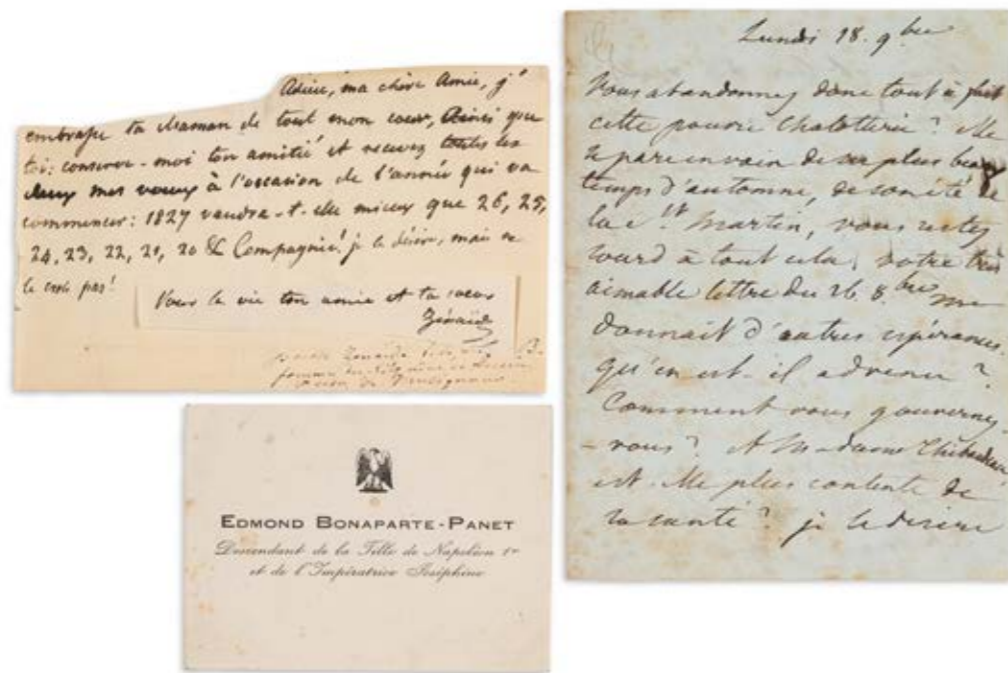 Adieu, ma chère Amie, j'
embrasse ta Maman de tout mon coeur, Ainsi que
toi: conserve-moi ton amitié et recevez toutes les
deux mes voeux à l'occasion de l'année qui va
commencer: 1827 vaudra-t-elle mieux que 26, 25,
24, 23, 22, 21, 20 & Compagnie! je le désire, mais ne
le crois pas!
Pour la vie ton amie et ta soeur
Zénaïde
Zénaïde
femme
EDMOND BONAPARTE-PANET
Descendant de la Fille de Napoléon 1er
et de l'Impératrice Joséphine
Lundi 18. 9bre
Vous abandonnez donc tout à fait
cette pauvre Chalotterie? Elle
se pare en vain de ses plus beaux
temps d'automne, de son été de
la St. Martin, vous restez
sourd à tout cela, votre très
aimable lettre du 26. 8bre me
donnait d'autres espérances
qu'en est-il advenu?
Comment vous gouvernez-
-vous? et Madame Thibaudeau
est-elle plus contente de
sa santé? je le désire